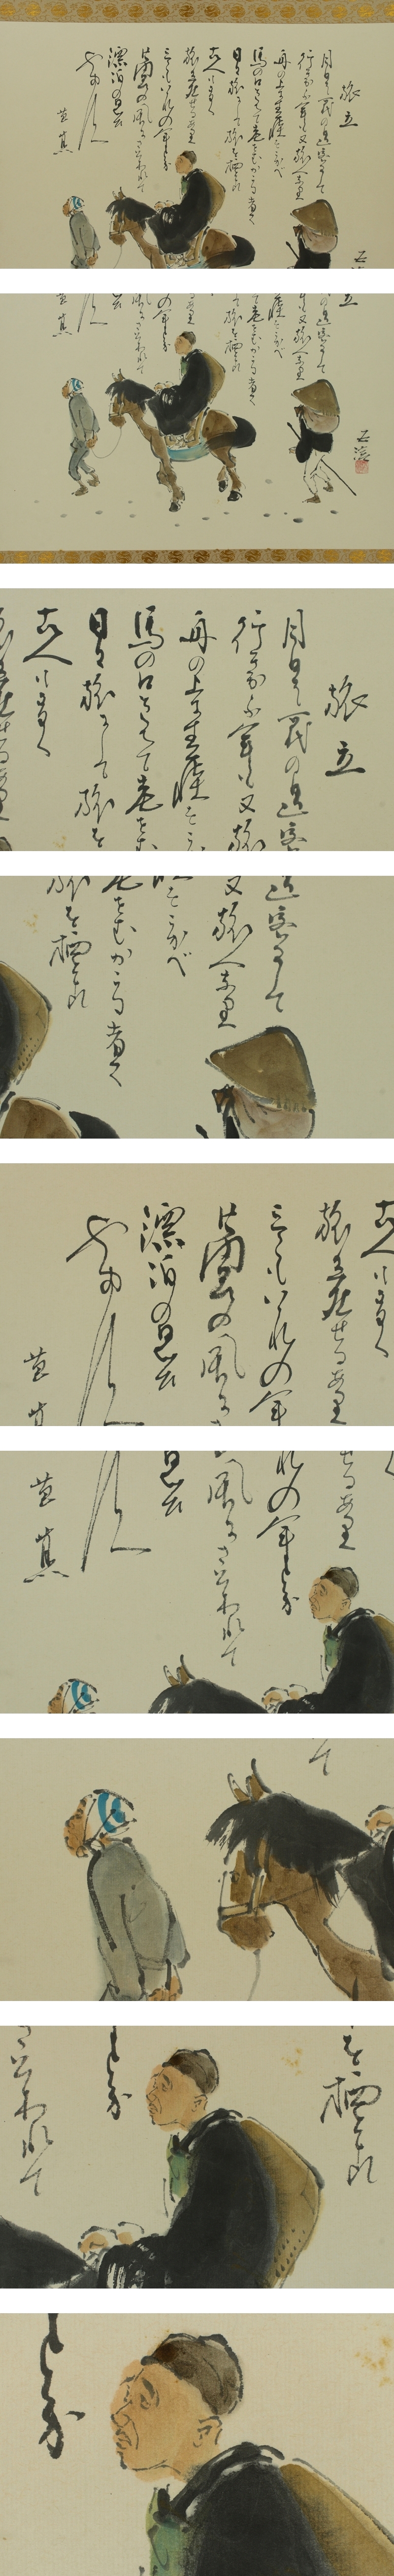 旅立
月日は百代の過客にして
行かふ年も又旅人なり
舟の上に生涯をうかべ
馬の口とらえて老をむかふる者は
日々旅にして旅を栖とす
古人も多く
旅に死せるあり
予もいづれの年よりか
片雲の風にさそはれて
漂泊の思ひ
やまず
芭蕉